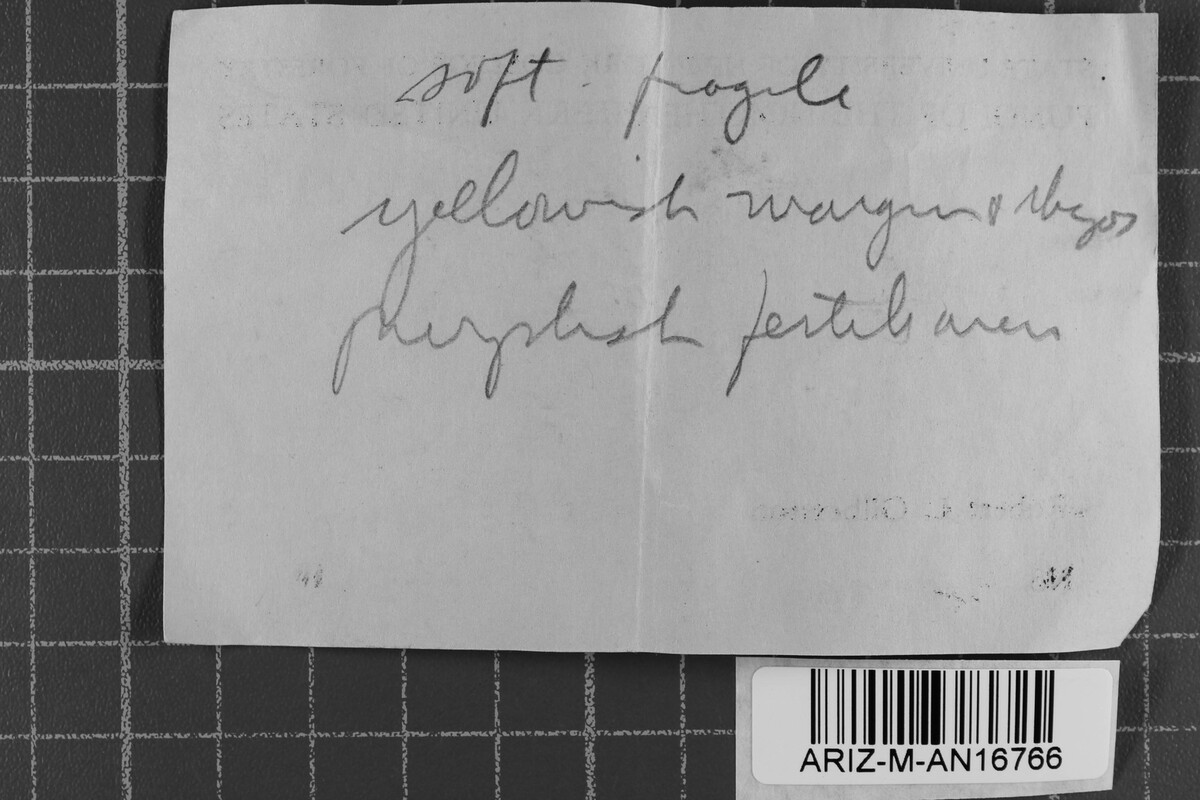 soft - fragile
yellowish margin & rhizos
purplish fertile area
ARIZ-M-AN16766